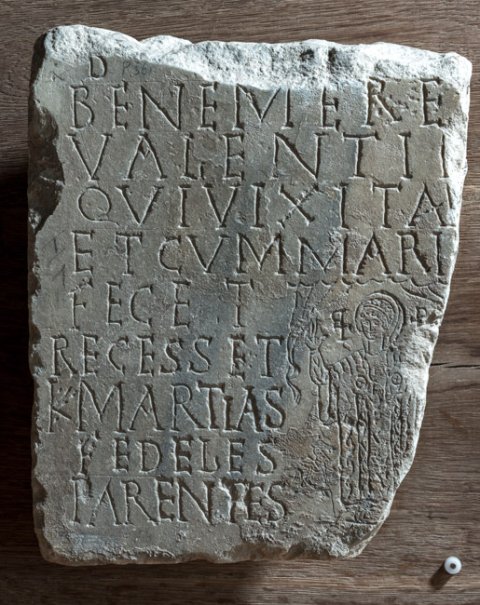 D
BENEMERE
VALENTII
QVIVIXITA
ETCVMMARI
FECET
RECESSET
KMARTIAS
FEDELES
PARENTES